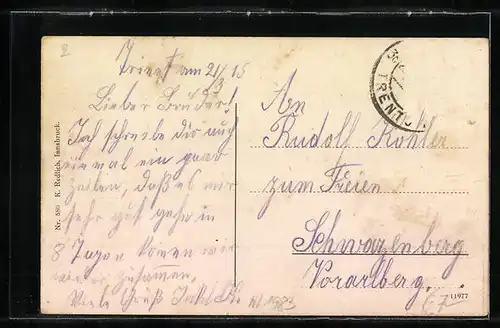 Trient am 21/3 15
Lieber Bruder!
Ich schreibe dir auch
einmal ein paar
Zeilen, daß es mir
sehr gut geht in
8 Tagen komen wir
wieder zusammen,
Viele Grüß
Nr. 580 K. Redlich, Innsbruck.
TRENTO
An
Rudolf Kohler
zum Freien
Schwarzenberg
Vorarlberg.
11977